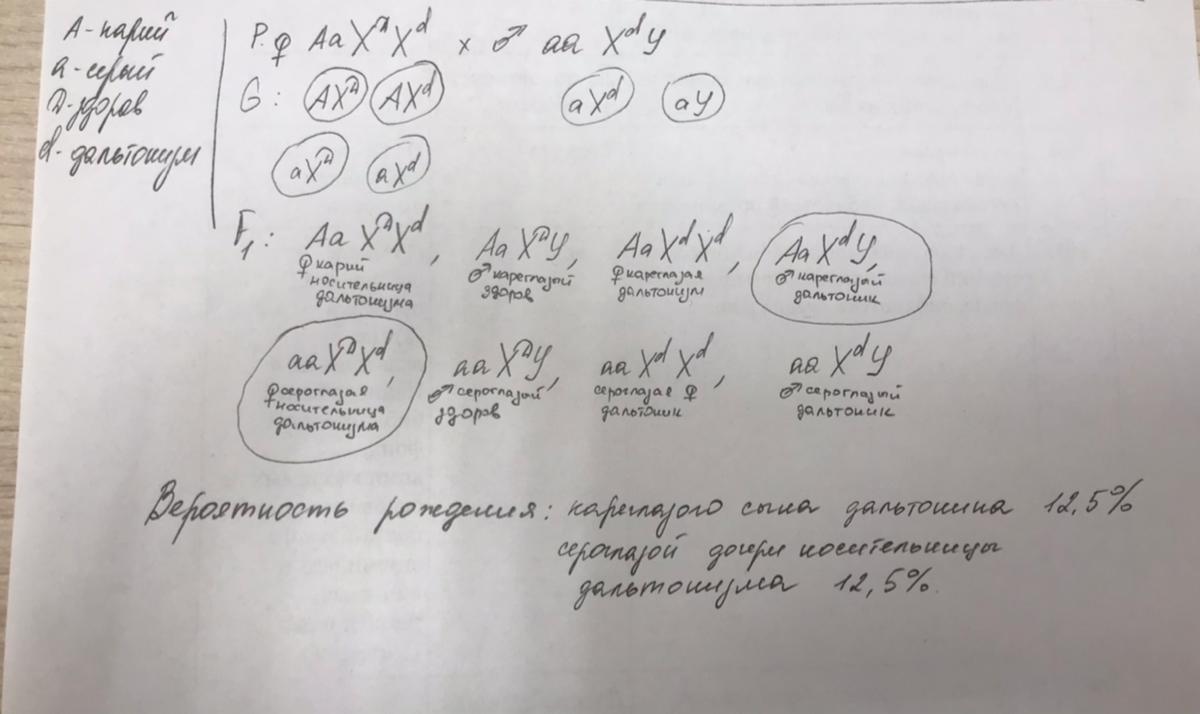 А - карий
а - серый
D - здоров
d - дальтонизм
P. ♀ Aa XᴰXᵈ × ♂ aa XᵈY
G : AXᴰ AXᵈ aXᵈ aY
aXᴰ aXᵈ
F₁ : Aa XᴰXᵈ, Aa XᴰY, Aa XᵈXᵈ, Aa XᵈY,
♀ карий носительница дальтонизма
♂ кареглазый здоров
♀ кареглазая дальтонизм
♂ кареглазый дальтоник
aa XᴰXᵈ, aa XᴰY, aa XᵈXᵈ, aa XᵈY
♀ сероглазая носительница дальтонизма
♂ сероглазый здоров
сероглазая ♀ дальтоник
♂ сероглазый дальтоник
Вероятность рождения : кареглазого сына дальтоника 12,5%
сероглазой дочери носительницы
дальтонизма 12,5%.